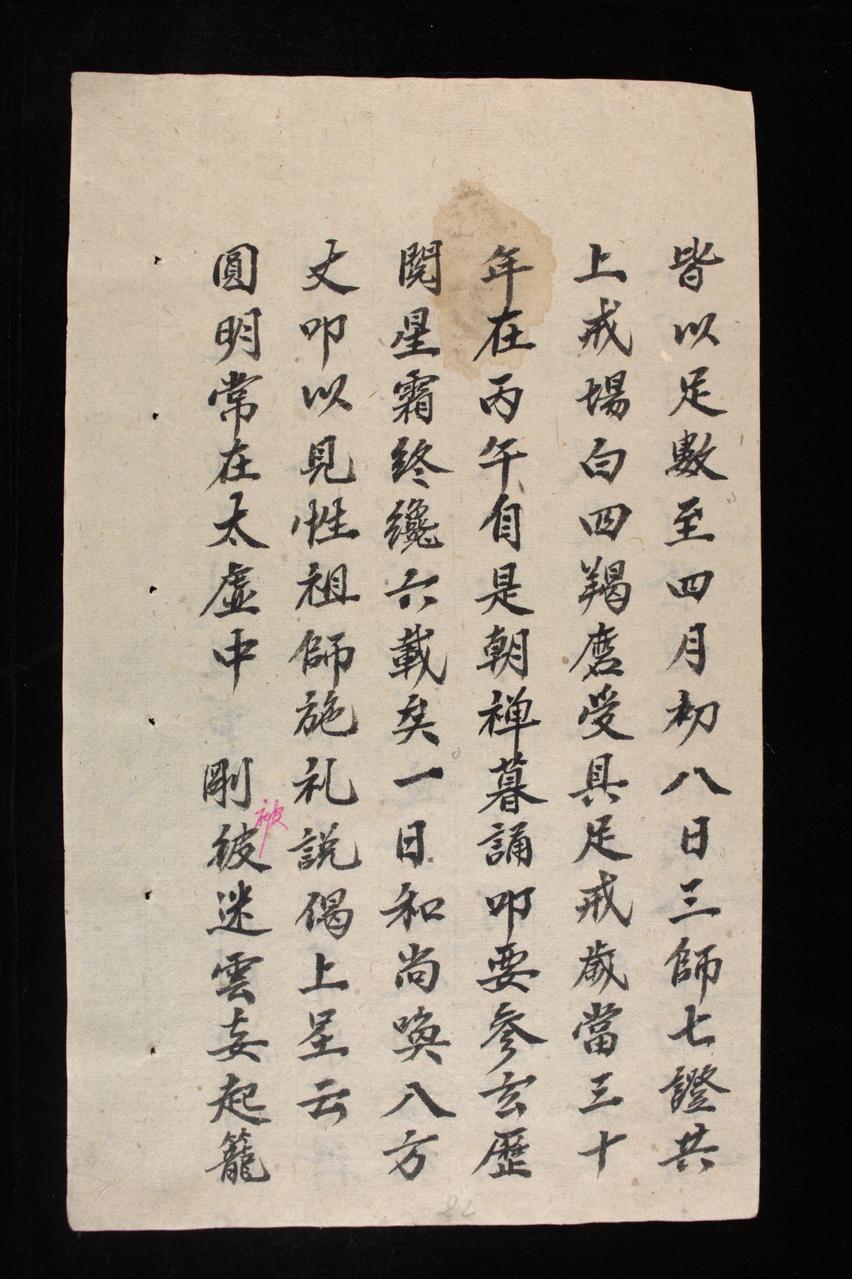 皆以足數至四月初八日三師七證共
上戒場白四羯磨受具足戒歲當三十
年在丙午自是朝禅暮誦叩要參玄歷
閱星霜終纔六載矣一日和尚喚八方
丈叩以見性祖師施礼説偈上呈云
圓明常在太虛中　剛彼迷雲妄起籠
被
22